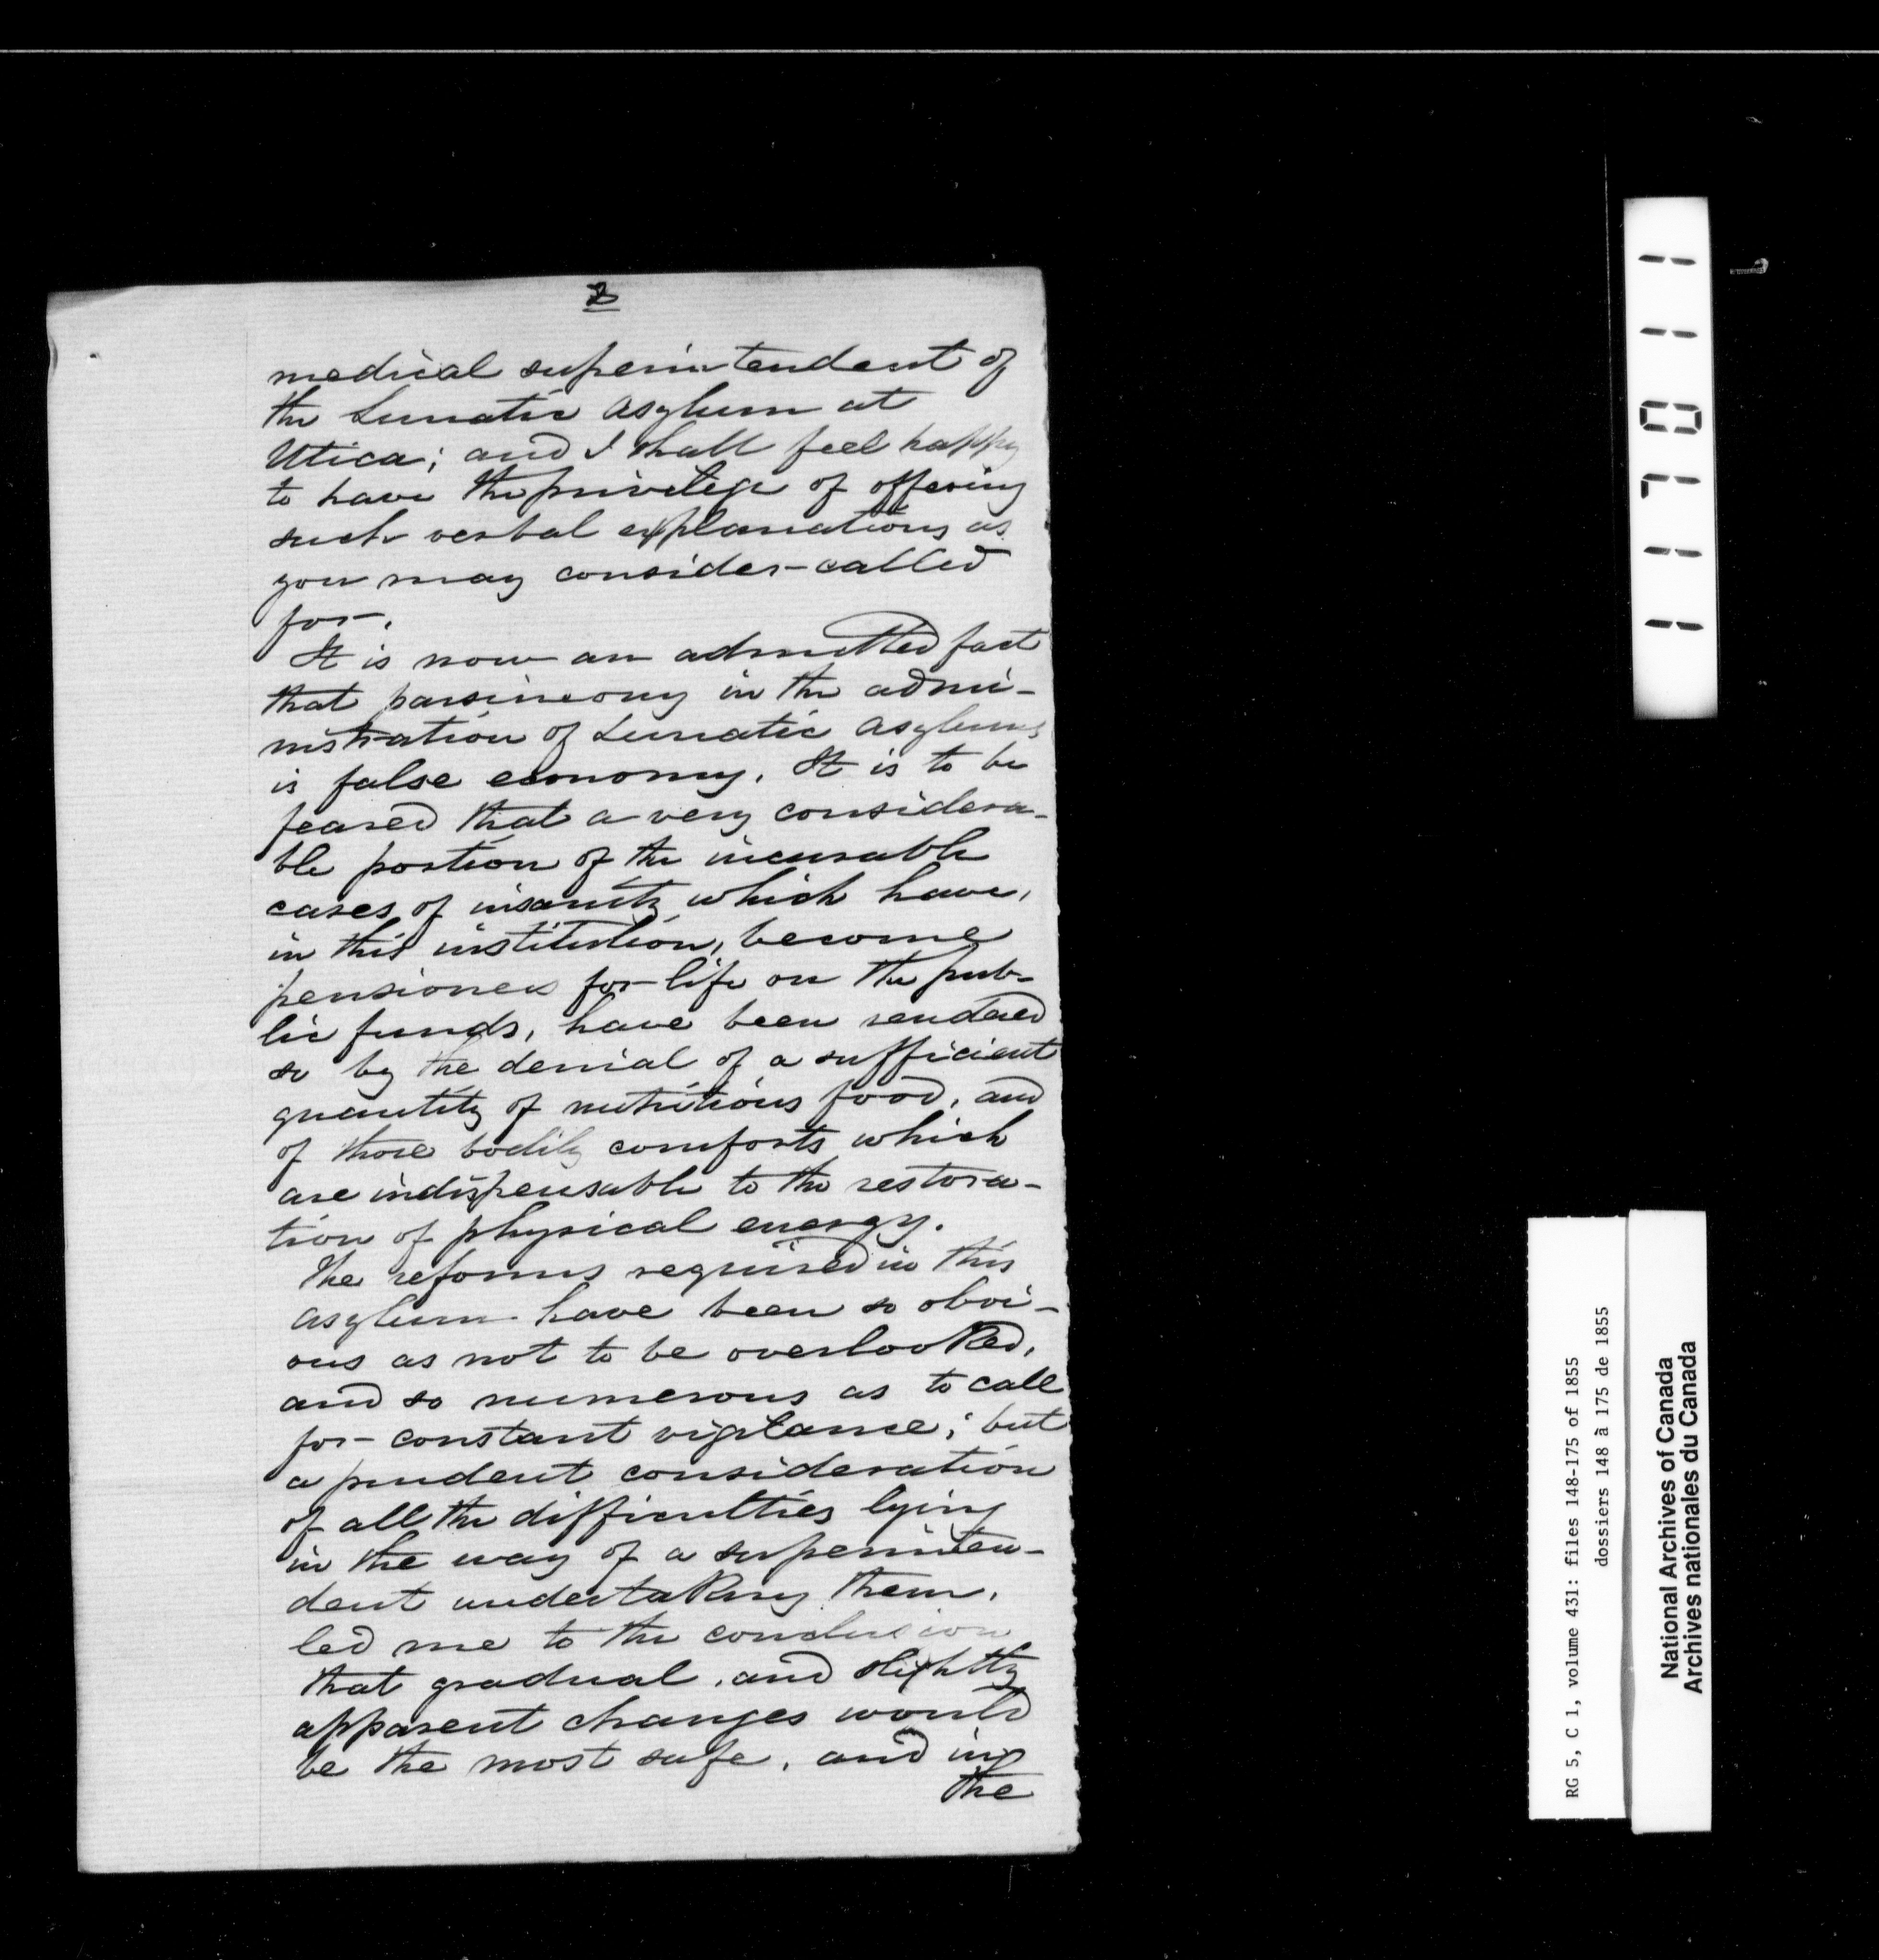 2
medical superintendent of
the Lunatic Asylum at
Utica; and I shall feel happy
to have the privilege of offering
such verbal explanations as
you may consider called
for.
It is now an admitted fact
that parsimony in the admi-
nistration of Lunatic Asylums
is false economy. It is to be
feared that a very considera-
ble portion of the incurable
cases of insanity which have,
in this institution, become
pensioners for life on the pub-
lic funds, have been rendered
so by the denial of a sufficient
quantity of nutritious food, and
of those bodily comforts which
are indispensable to the restora-
tion of physical energy.
The reforms required in this
asylum have been so obvi-
ous as not to be overlooked,
and so numerous as to call
for constant vigilance; but
a prudent consideration
of all the difficulties lying
in the way of a superinten-
dent undertaking them,
led me to the conclusion
that gradual, and slightly
apparent changes would
be the most safe, and in
the
117011
RG 5, C 1, volume 431: files 148-175 of 1855
dossiers 148 à 175 de 1855
National Archives of Canada
Archives nationales du Canada